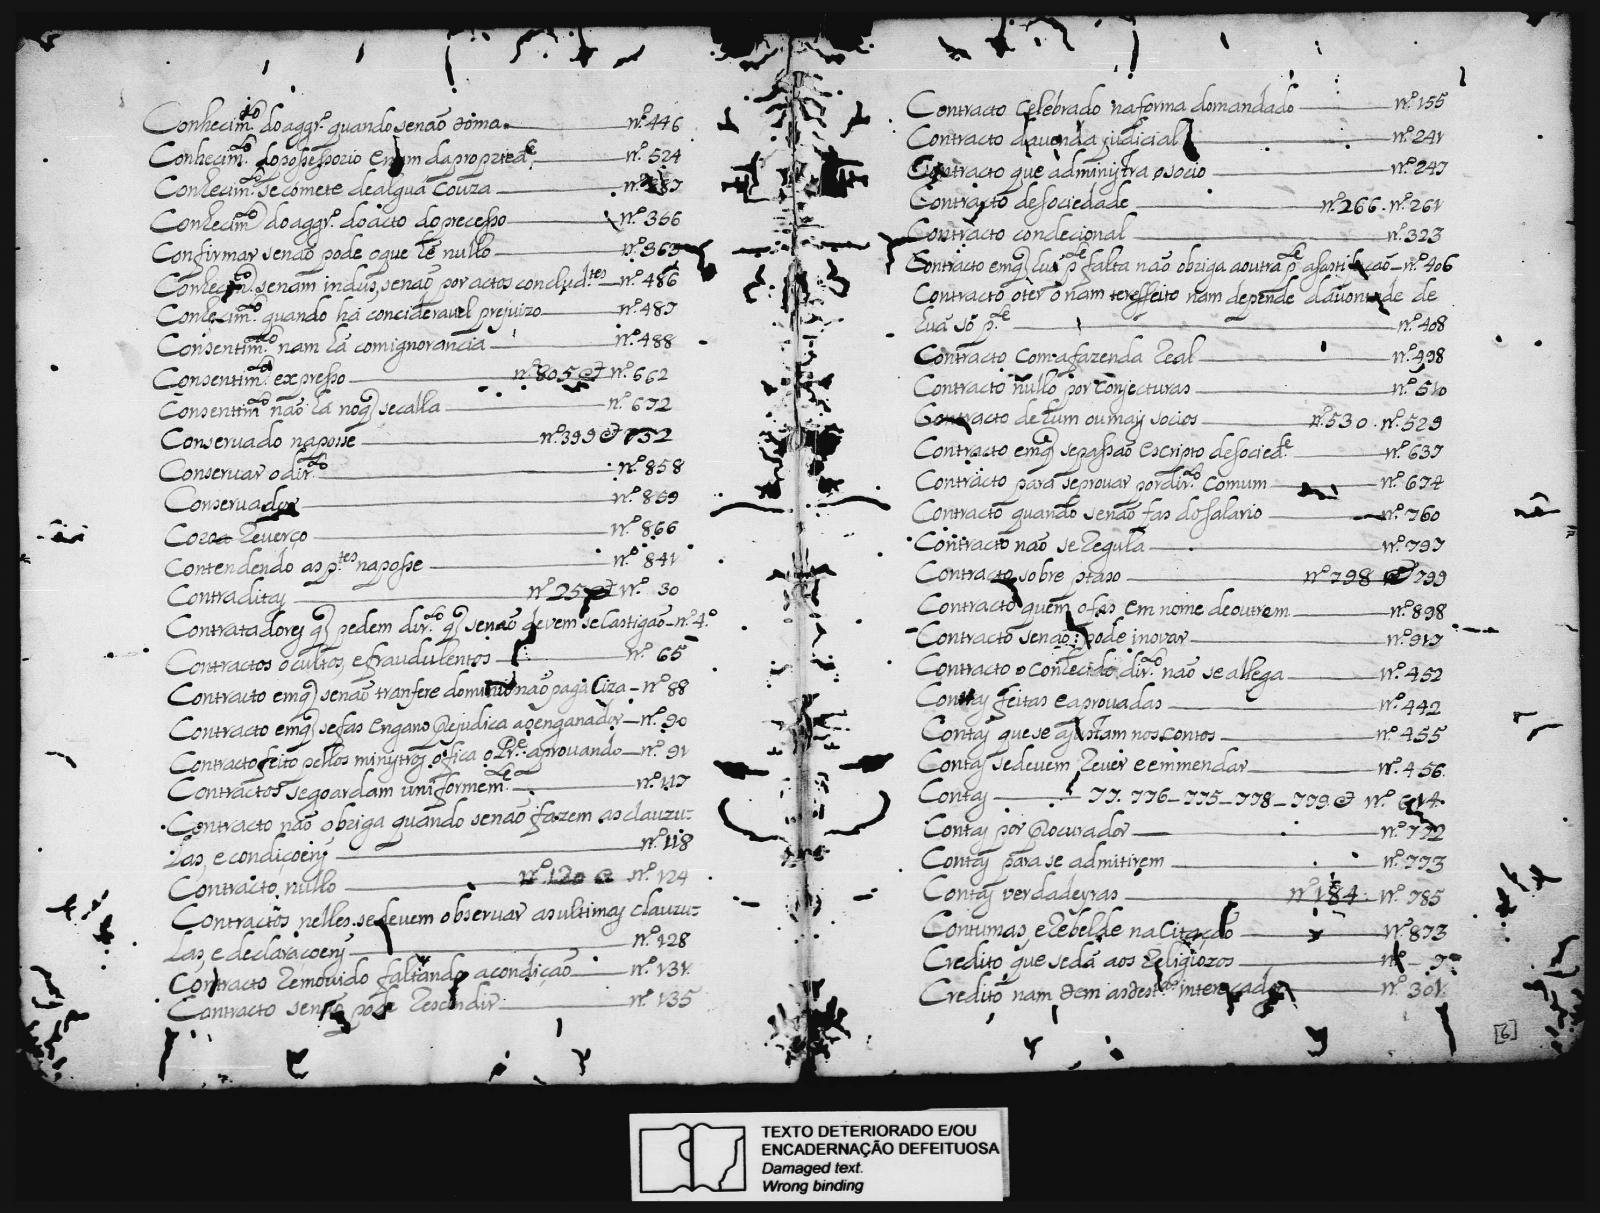 Conhecim.to do aggr.o quando senaõ toma — n.º 446
Conhecim.to do possessorio e nam da propried.e — n.º 524
Conhecim.to se comete de alguã couza — n.º
Conhecim.to do aggr.o do acto do precesso — n.º 366
Confirmar senaõ pode o que he nullo — n.º 363
Conhecim.to senam indus, senaõ por actos conclud.tes — n.º 486
Conhecim.to quando há concideravel prejuizo — n.º 487
Consentim.to nam há com ignorancia — n.º 488
Consentim.to expresso — n.º 805 et n.º 662
Consentim.to naõ há no q̃ se calla — n.º 672
Conservado na posse — n.º 399 et 732
Conservar o dir.to — n.º 858
Conservador — n.º 859
Coroa Reverço — n.º 866
Contendendo as p.tes na posse — n.º 841
Contraditas — n.º 25 et n.º 30
Contratadores q̃ pedem dir.to q̃ senaõ devem se castigaõ — n.º 4º
Contractos ocultos, e fraudulentos — n.º 65
Contracto em q̃ senaõ tranfere dominio naõ paga Ciza — n.º 88
Contracto em q̃ se fas engano Prejudica ao enganador — n.º 90
Contracto feito pellos minystros, o fica o Pr.e aprovando — n.º 91
Contractos se goardam uniformem.te — n.º 117
Contracto naõ obriga quando senaõ fazem as clauzu=
las, e condiçoens — n.º 118
Contracto nullo — n.º 120 e n.º 124
Contractos nelles se devem observar as ultimas clauzu=
las, e declaraçoens — n.º 128
Contracto Removido faltando a condiçaõ — n.º 131
Contracto senaõ pode Rescindir — n.º 135
Contracto celebrado na forma do mandado — n.º 155
Contracto da venda judicial — n.º 241
Contracto que adminystra o socio — n.º 247
Contracto de sociedade — n.º 266. n.º 261
Contracto condecional — n.º 323
Contracto em q̃ huã p.te falta naõ obriga a outra p.te a satisfaçaõ — n.º 406
Contracto o ter o nam ter effeito nam depende da vontade de
huã só p.te — n.º 408
Contracto com a fazenda Real — n.º 498
Contracto nullo por conjecturas — n.º 510
Contracto de hum ou mays socios — n.º 530. n.º 529
Contracto em q̃ se passaõ escripto de socied.e — n.º 637
Contracto para se provar por dir.to comum — n.º 674
Contracto quando senaõ fas do salario — n.º 760
Contracto naõ se Regula — n.º 797
Contracto sobre — n.º 798 et 799
Contracto quem o fas em nome de outrem — n.º 898
Contracto senaõ pode inovar — n.º 917
Contracto o conhecido dir.to naõ se allega — n.º 452
Contas feitas e aprovadas — n.º 442
Contas que se ajustam nos contos — n.º 455
Contas se devem Rever e emmendar — n.º 456
Contas — 77. 776 — 775 — 778 — 779 et n.º 614.
Contas por Procurador — n.º 772
Contas para se admitirem — n.º 773
Contas verdadeyras — n.º 184. n.º 785
Contumas, e Rebelde na Citaçaõ — n.º 873
Credito que se dá aos Religiozos — n.º 7
Credito nam tem as test.as intereçadas — n.º 301
[6]
TEXTO DETERIORADO E/OU
ENCADERNAÇÃO DEFEITUOSA
Damaged text.
Wrong binding